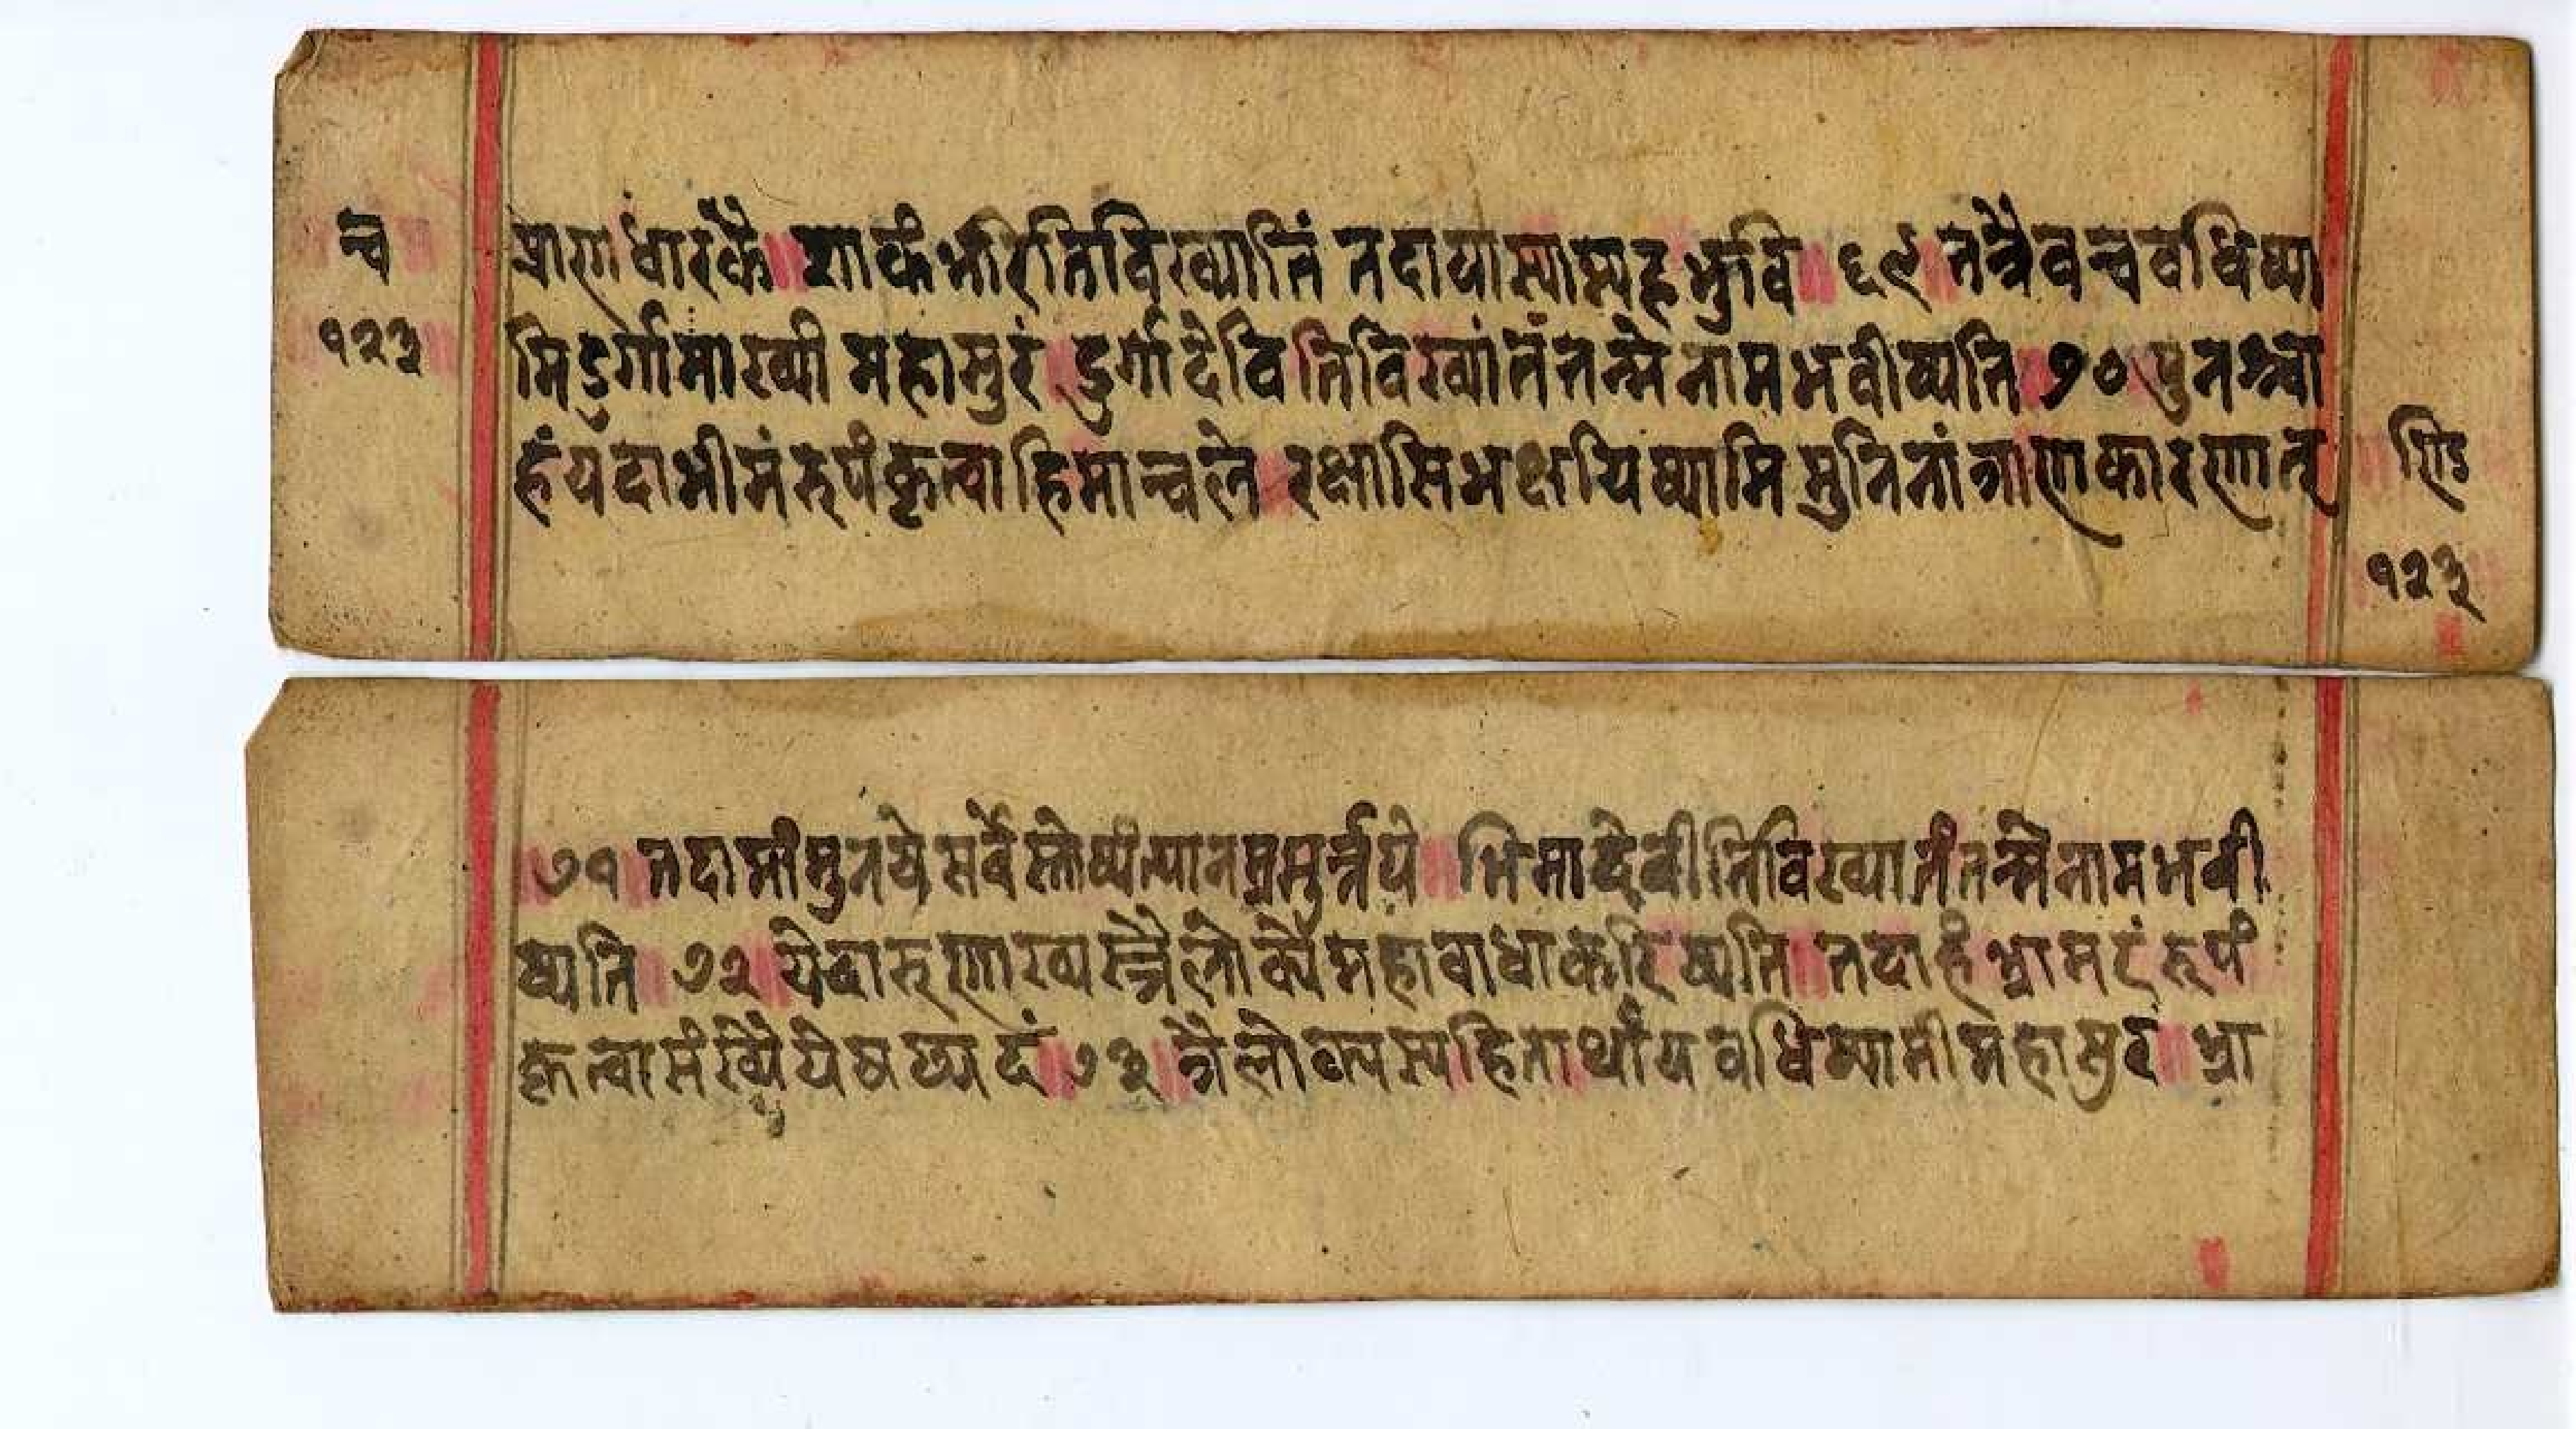 च
१२३
प्राणधारकै॥ शाकंभरितिविख्यातिं तदायास्याम्यहभुवि॥ ६९॥ तत्रैवचवधिष्या
मिदुर्गामाख्यी महासुरं॥ दुर्गादेवितिविख्यांतंतन्मेनामभवीष्यति॥ ७०॥ पुनश्चा
हंयदाभीमंरुपंकृत्वाहिमाचले॥ रक्षासिभक्षयिष्यामिमुनिनांत्राणकारणात्
ण्डि
१२३
॥ ७१॥ तदामांमुनयेसर्वेस्तोष्यंत्यानम्रमुर्त्तये॥ भिमादेवीतिविख्यातंतन्मेनामभवी
ष्यति॥ ७२॥ येदारुणाख्यस्त्रैलोक्यैमहावाधाकरिष्यति॥ तदाहंभ्रामरंरूपं
कृत्वासंख्यैयेषष्पदं॥ ७३॥ त्रैलोक्यस्यहितार्थायवधिष्यामीमहासुरं॥ भ्रा